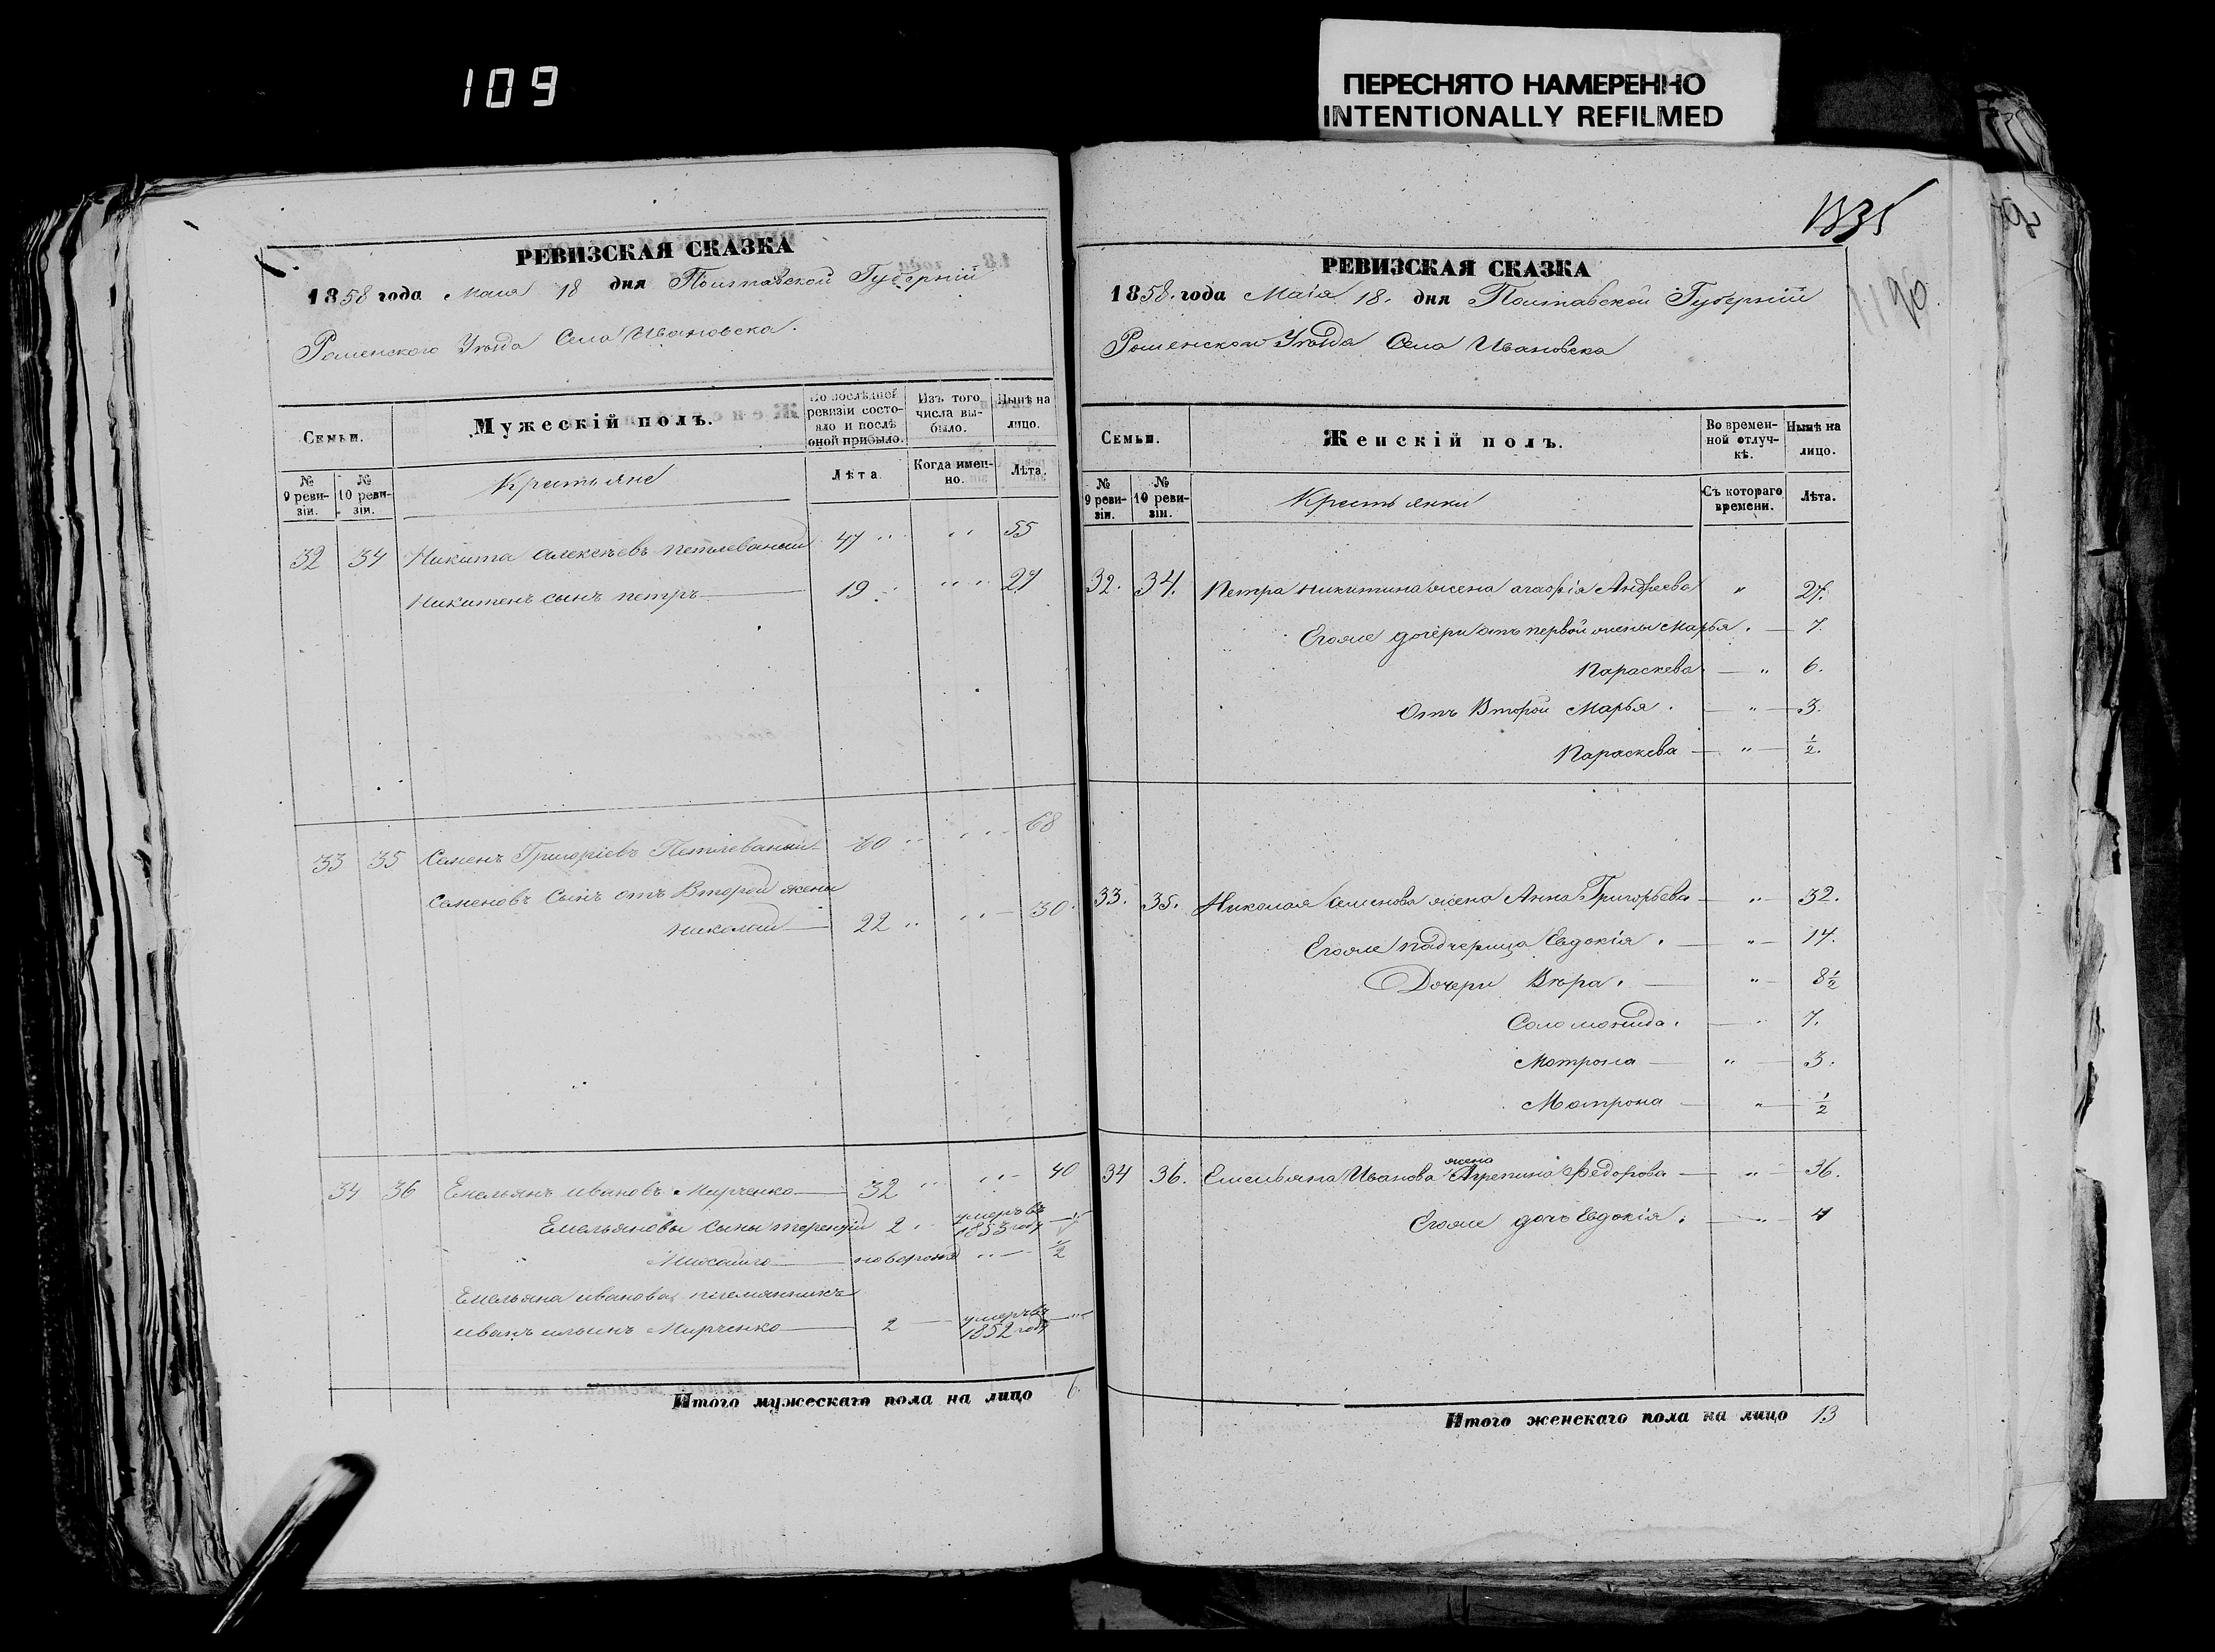 109
ПЕРЕСНЯТО НАМЕРЕННО
INTENTIONALLY REFILMED
РЕВИЗСКАЯ СКАЗКА
1858 года Маия 18 дня Полтавской Губерніи
Роменского Уѣзда Села Ивановска.
Семьи.
Мужескій полъ.
По послѣдней ревизіи состояло и послѣ оной прибыло.
Изъ того числа выбыло.
Нынѣ на лицо.
№ 9 ревизіи.
№ 10 ревизіи.
Крестьяне
Лѣта.
Когда именно.
Лѣта.
32 34 Никита Алексѣевъ Петлеваный 47 " " 55
Никитенъ сынъ петръ 19 " " 27
33 35 Семенъ Григоріевъ Петлеваный 60 " " 68
Семеновъ Сынъ отъ Второй жены
Николай 22 " " 30
34 36 Емельянъ Ивановъ Мирченко 32 " " 40
Емельяновы сыны терентій 2 умеръ въ 1853 году "
новорожд " 1/2
Емельяна иванова племянникъ
иванъ ильинъ Мирченко 2 умеръ въ 1852 году "
Итого мужескаго пола на лицо 6.
1335
1190.
РЕВИЗСКАЯ СКАЗКА
1858. года Маія 18. дня Полтавской Губерніи
Роменского Уѣзда Села Ивановска
Семьи.
Женскій полъ.
Во временной отлучкѣ.
Нынѣ на лицо.
№ 9 ревизіи.
№ 10 ревизіи.
Крестьянки
Съ котораго времени.
Лѣта.
32. 34. Петра Никитина жена агафія Андреева " 27.
Егоже дочери отъ первой жены Марья. 7.
Параскева " 6.
Отъ Второй Марья. " 3.
Параскева " 1/2.
33. 35. Николая Семенова жена Анна Григорьева " 32.
Егоже падчерица Евдокія. " 14.
Дочери Вѣра. " 8 1/2
Соломонида. " 7.
Мотрона " 3.
Мотрона " 1/2
34 36. Емельяна Иванова жена Агрепина Федорова " 36.
Егоже дочь Евдокія. " 4
Итого женскаго пола на лицо 13